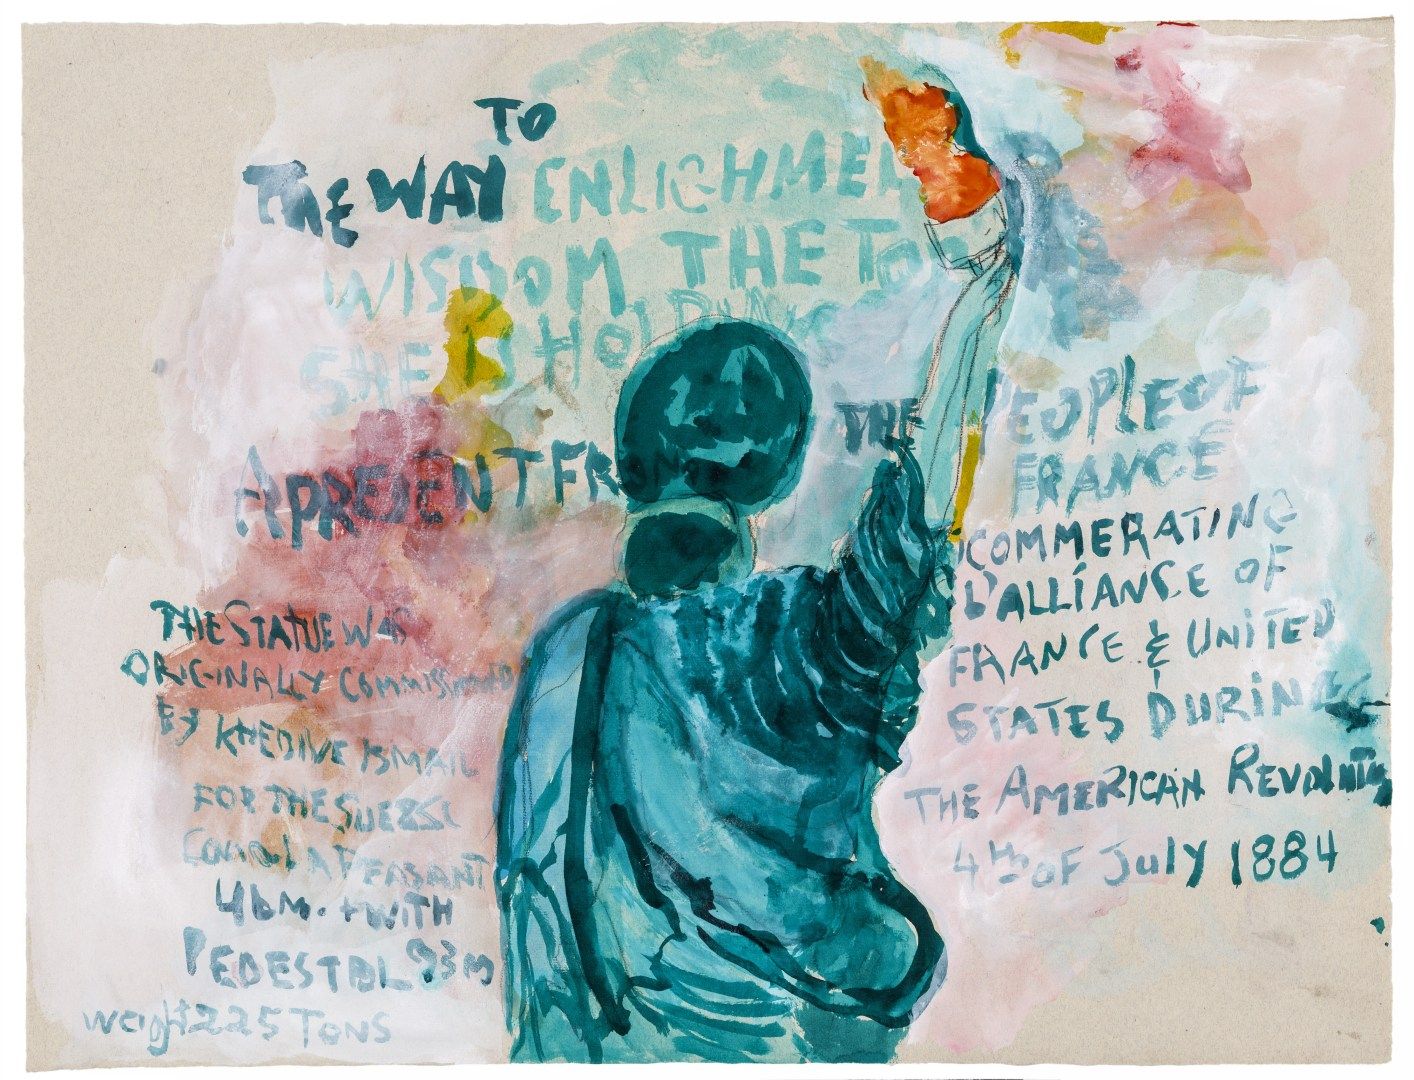 TO
THE WAY
ENLIGHMEN
WISDOM THE TO
SHE IS HOLDING
A PRESENT FROM THE PEOPLE OF
FRANCE
COMMERATING
L'ALLIANCE OF
FRANCE & UNITED
STATES DURING
THE AMERICAN REVOLUTION
4th OF July 1884
THE STATUE WAS
ORIGINALLY COMMISSIONED
BY KHEDIVE ISMAIL
FOR THE SUEZSC
A PEASANT
46M. + WITH
PEDESTAL 93M
weight 225 TONS